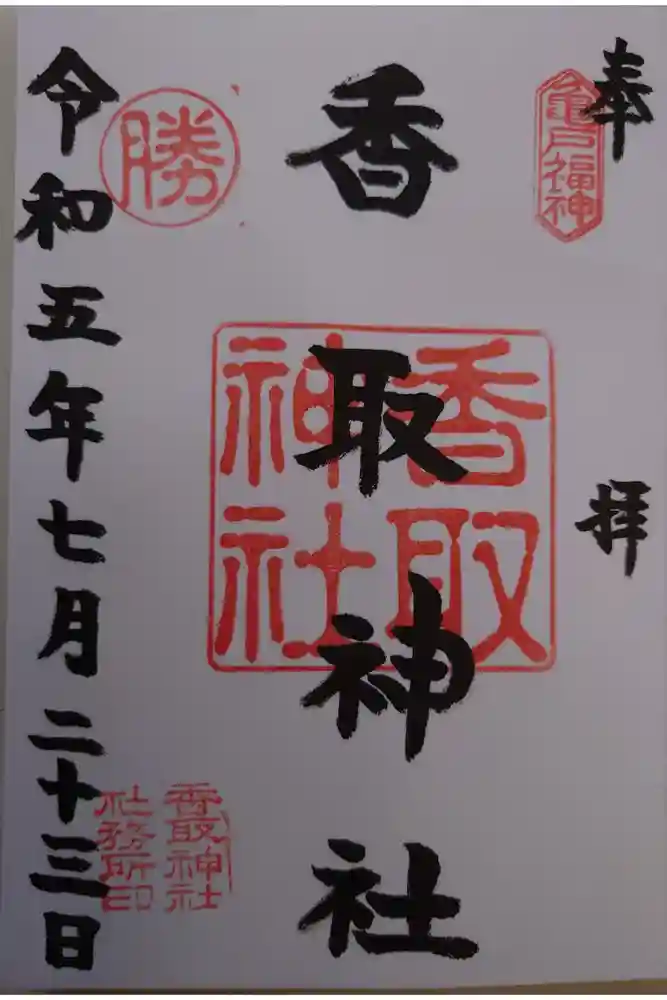 奉拝
亀戸福神
香取神社
香取
神社
勝
令和五年七月二十三日
香取神社
社務所印